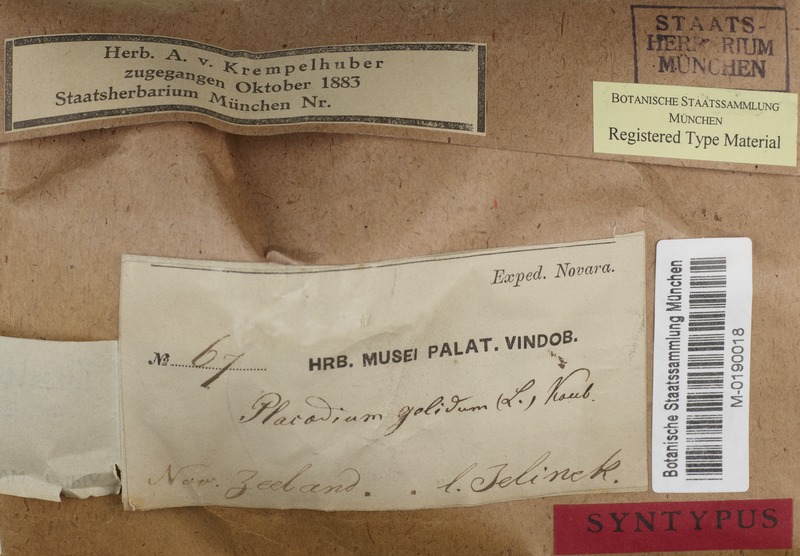 Herb. A. v. Krempelhuber
zugegangen Oktober 1883
Staatsherbarium München Nr.
STAATS-
HERBARIUM
MÜNCHEN
BOTANISCHE STAATSSAMMLUNG
MÜNCHEN
Registered Type Material
Exped. Novara.
No 67
HRB. MUSEI PALAT. VINDOB.
Placodium gelidum (L.) Körb.
Nov. Zeeland. l. Jelinek.
Botanische Staatssammlung München
M-0190018
SYNTYPUS